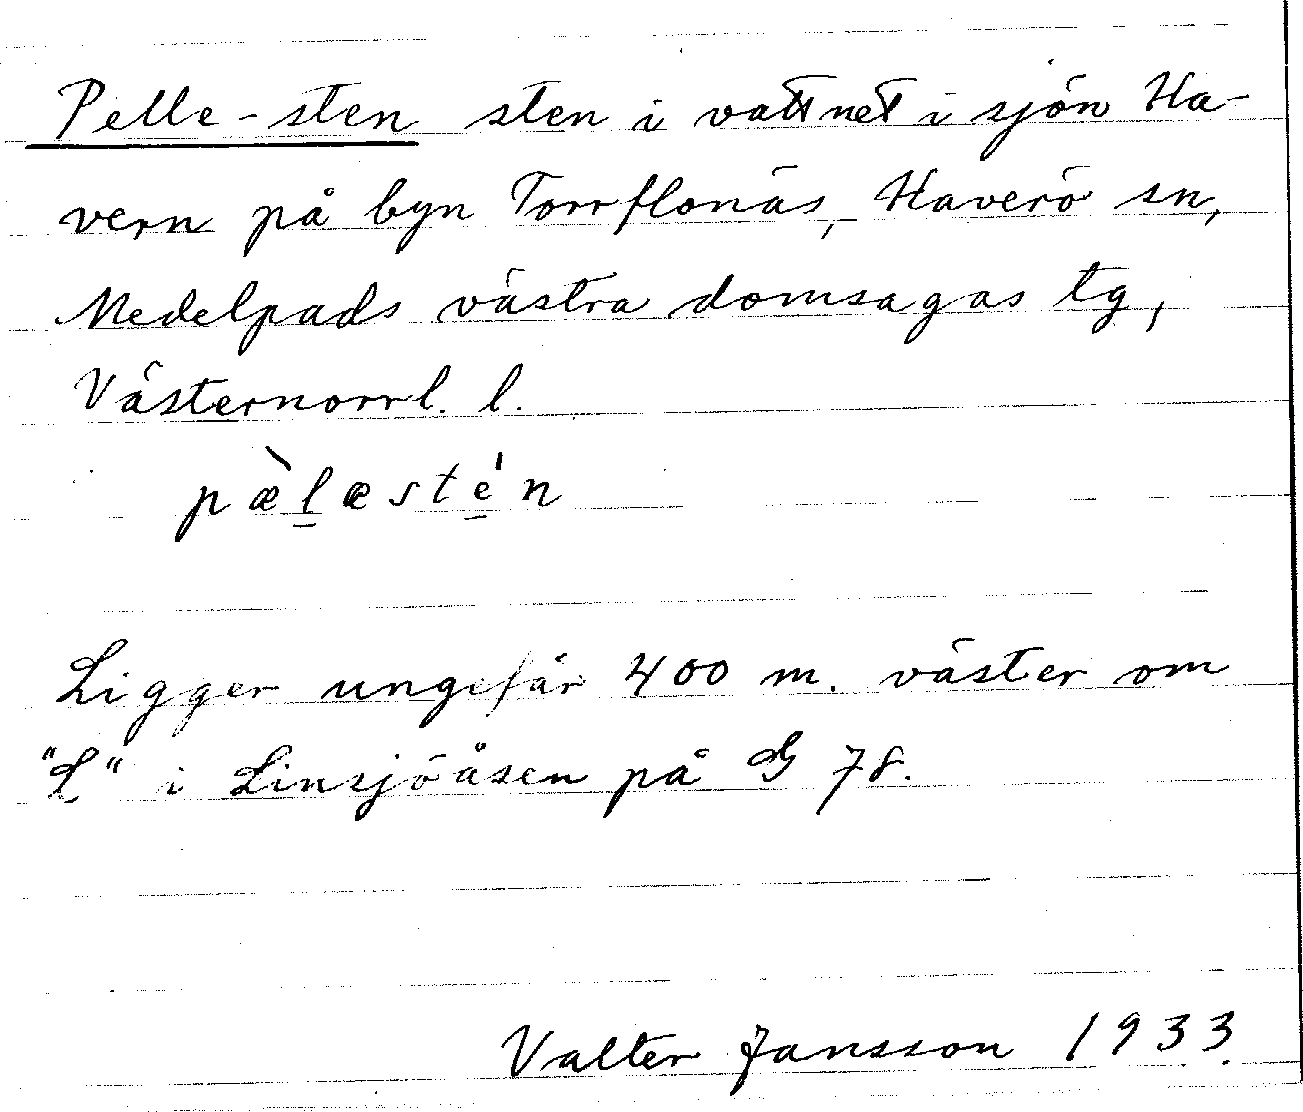 Pelle-sten sten i vattnet i sjön Ha-
vern på byn Torrflonäs, Haverö sn,
Medelpads västra domsagas tg,
Västernorrl. l.
pæ̀l̲æsté̲n
Ligger ungefär 400 m. väster om
"L" i Linsjöåsen på G 78.
Valter Jansson 1933.